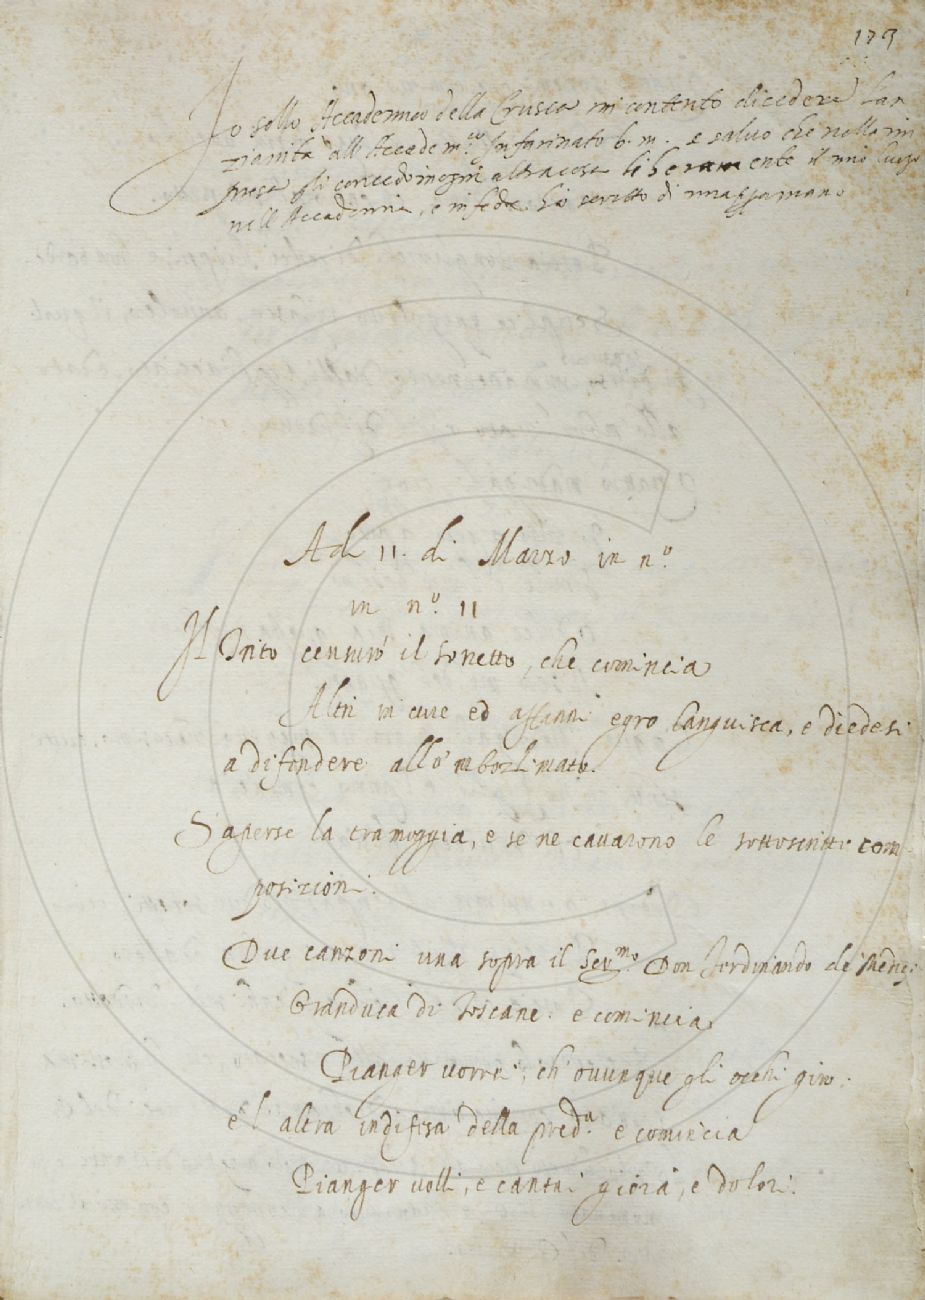 173
Io sollo Accademico della Crusca mi contento di cedere l'an
zianità all'Accadem.co Infarinato b. m. e salvo che nella im
presa gli concedo ogni altra cosa liberamente il mio luogo
nell'Accademia, e in fede ho scritto di mia mano
Adì 11. di Marzo in n.o
in n.o 11
Il Trito censurò il sonetto, che comincia
Altri in cure ed affanni egro languisca, e diedesi
a difendere allo 'mbozzimato.
S'aperse la tramoggia, e se ne cavarono le sottoscritte com-
posizioni.
Due canzoni una sopra il Ser.mo Don Ferdinando de' Medici
Granduca di Toscana. e comincia
Pianger vorrei, ch'ovunque gli occhi giro.
e l'altra in difesa della pred.a e comincia
Pianger volli, e cantai gioia, e dolori.